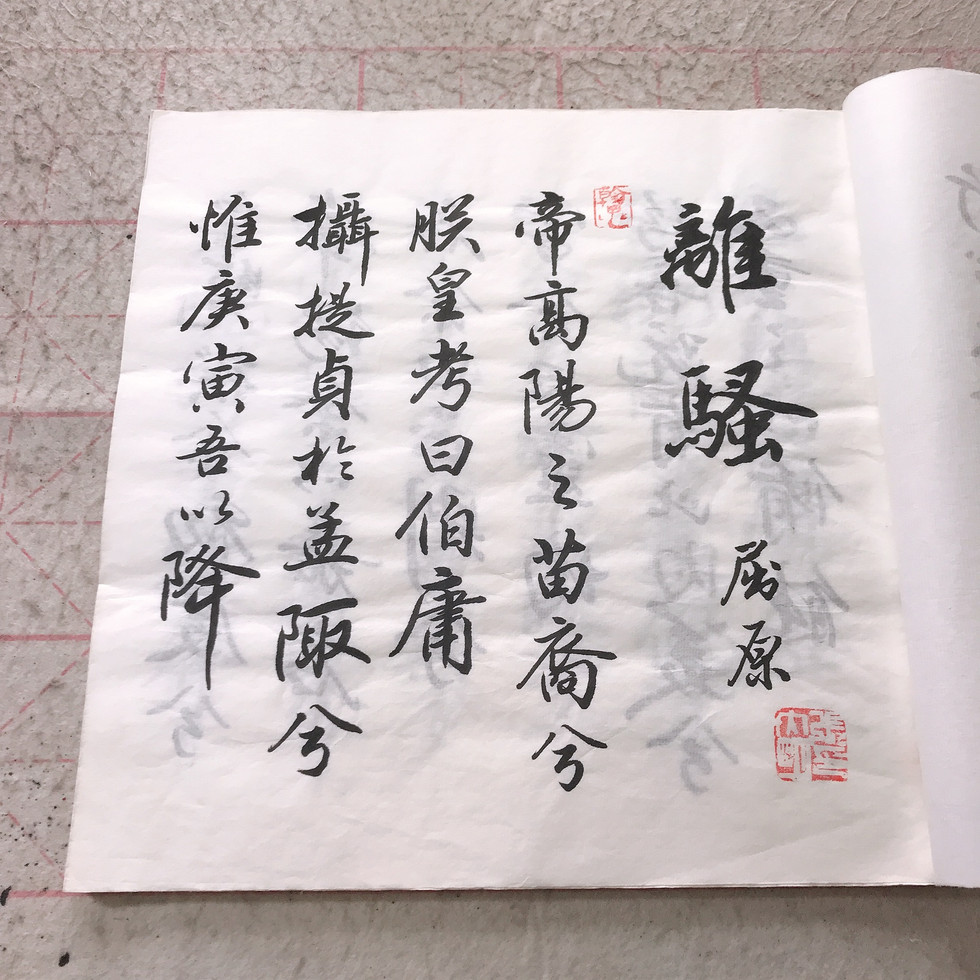 離騷
屈原
帝高陽之苗裔兮
朕皇考曰伯庸
攝提貞於孟陬兮
惟庚寅吾以降